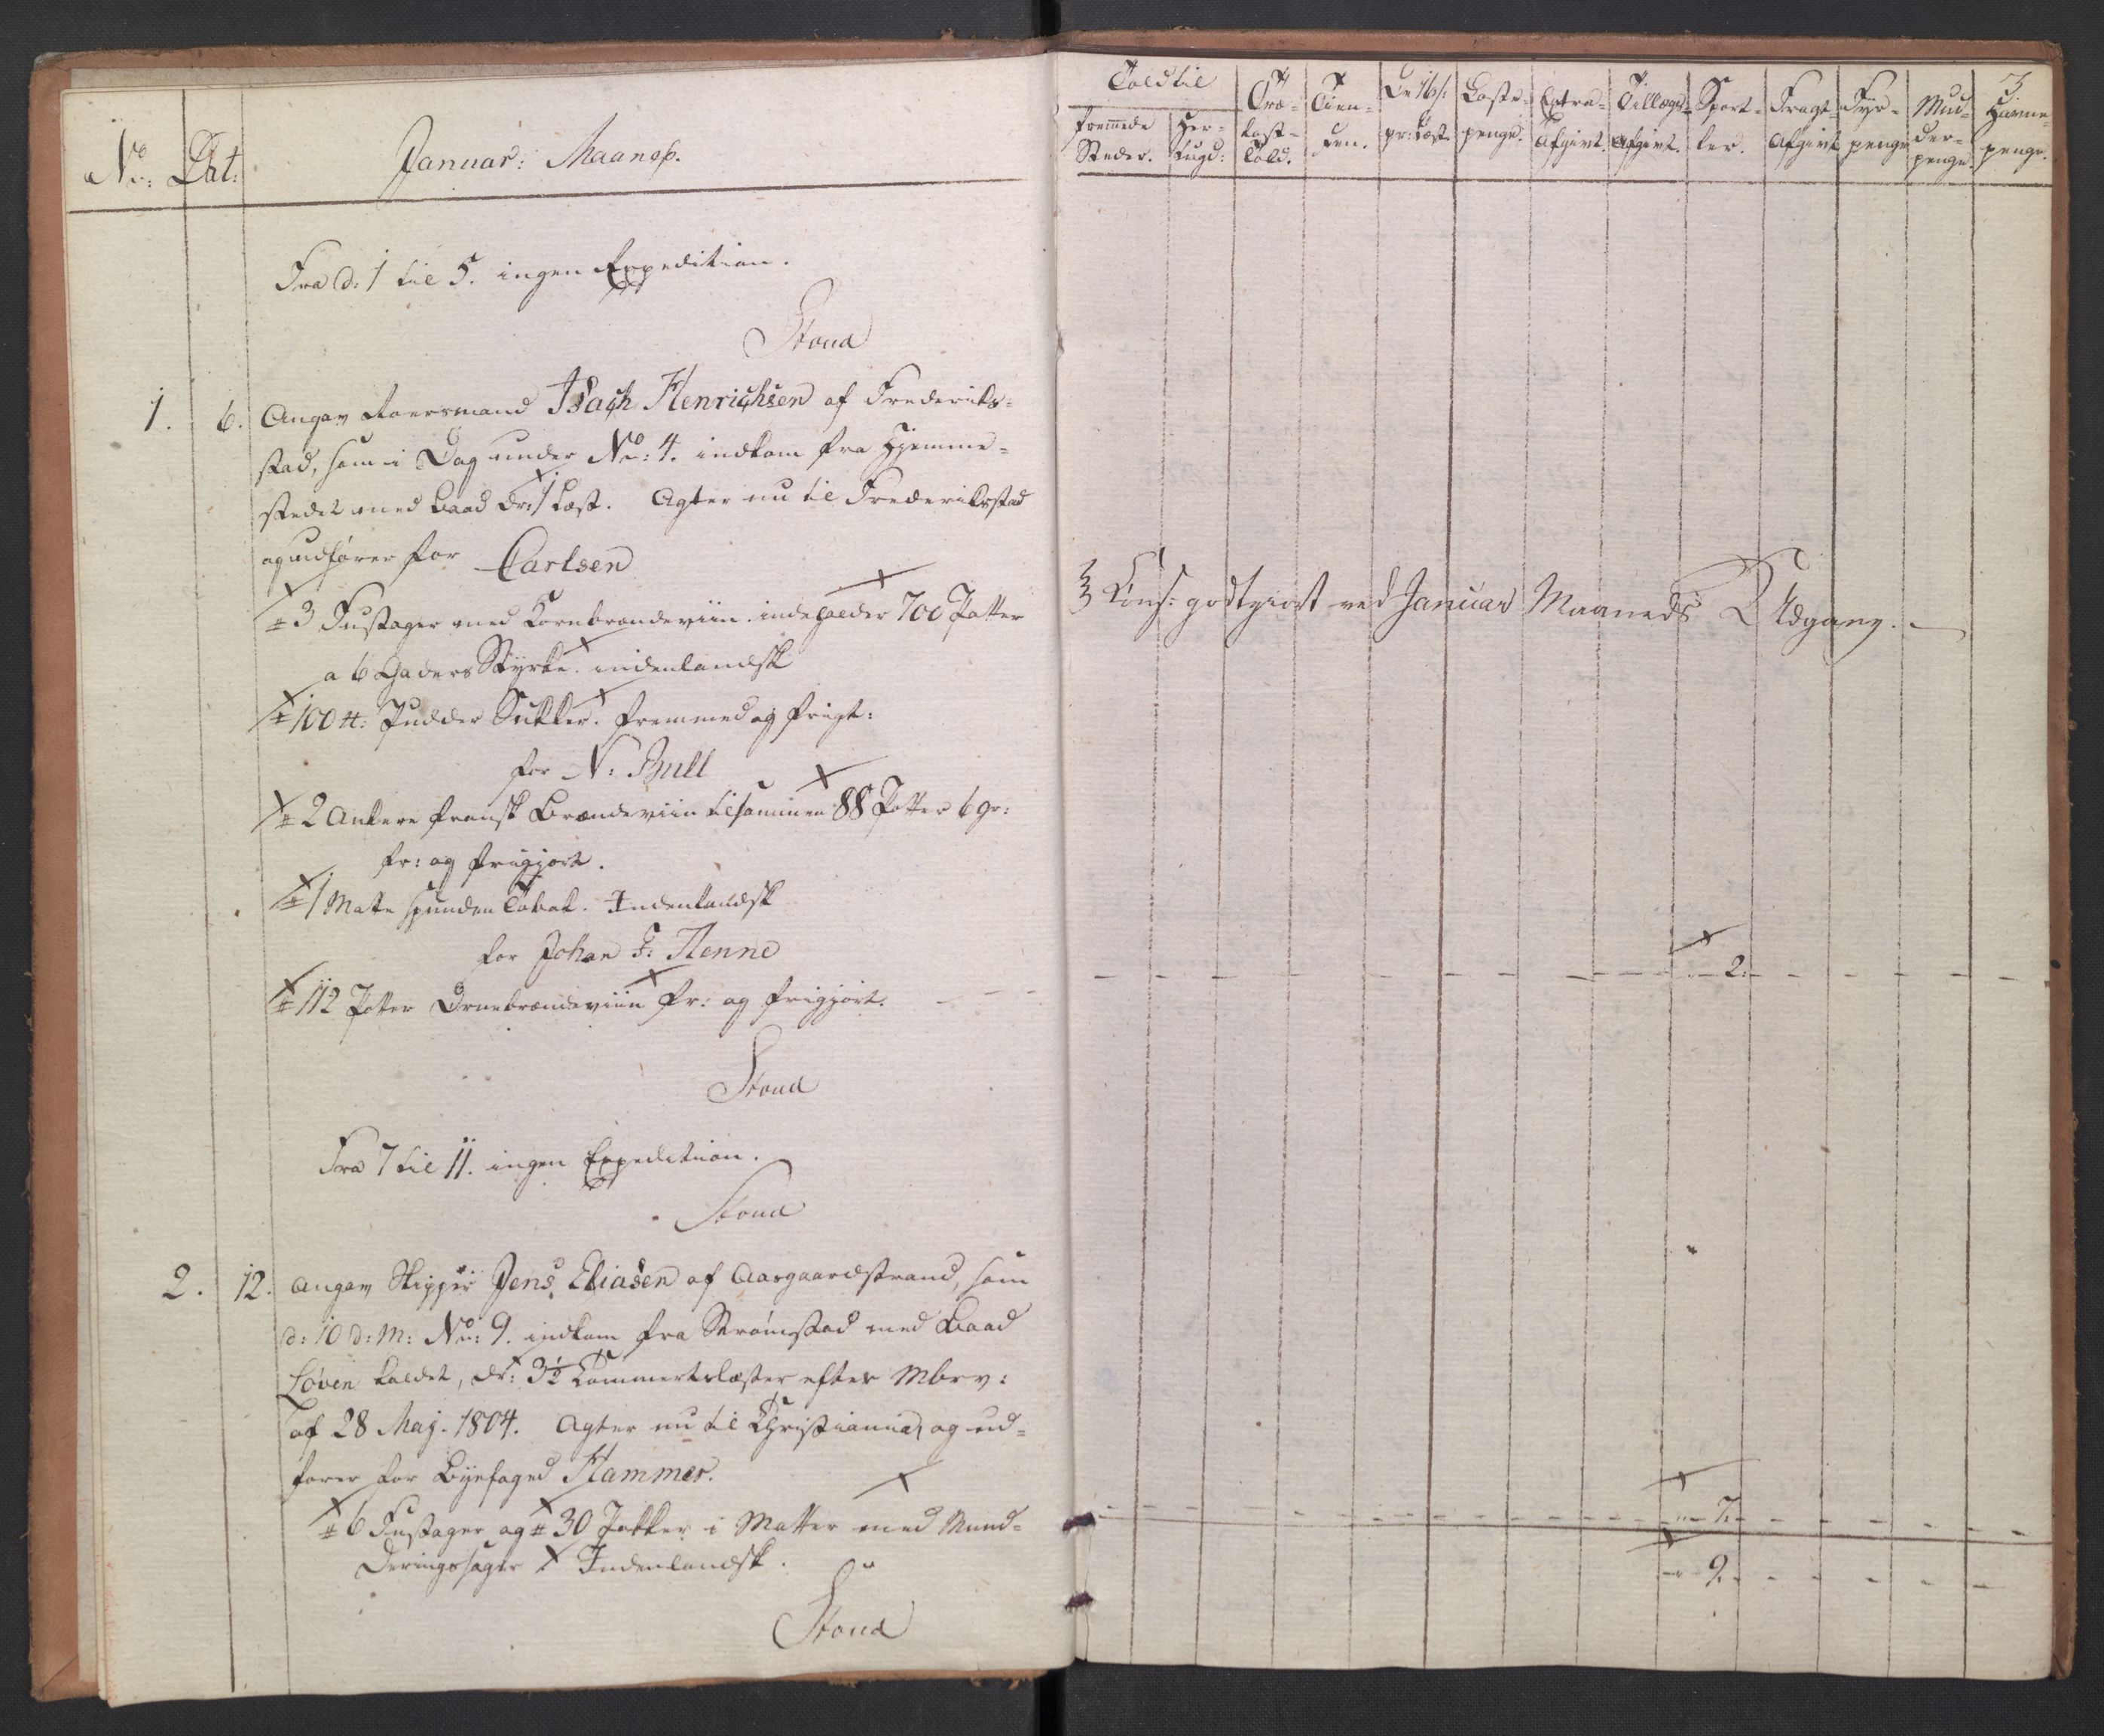 No: Dat: Januar: Maaned.
Fra d: 1 til 5. ingen Expedition.
Stoud
1. 6. Angav Roersmand Isach Henrichsen af Frederik-
stad, som i Dag under No: 4. indkom fra Hjemme-
stedet med Baad dr: 1 Læst. Agter nu til Frederikstad
og udfører for Carlsen
# 3 Fustager med Kornbrændeviin indeholder 700 Potter
a 6 Graders Styrke. indenlandsk
# 100 ℔: Pudder Sukker. fremmed og frigt:
for N: Bull
# 2 Ankere fransk Brændeviin tilsammen 88 Potter 6 gr:
fr: og frigjort.
# 1 Matte spunden Tobak. Indenlandsk
for Johan F: Henne
# 112 Potter Brændeviin fr: og frigjort.
Stoud
Fra 7 til 11. ingen Expedition.
Stoud
2. 12. Angav Skipper Jens Eliasen af Aasgaardstrand, som
d: 10 d: M: No: 9. indkom fra Strømstad med Baad
Løven kaldet, dr: 3½ Commertslæster efter Mbrv:
af 28 Maj. 1804. Agter nu til Christiania, og ud-
fører for Byefoged Hammer.
# 6 Fustager og # 30 Pakker i Matter med Mund-
deringssager Indenlandsk.
Stoud
Told til
fremmede Steder.
Her-
Træ-
last-
Told.
Tien-
den.
pr: Læst.
Laste-
penge.
Extra-
Afgivt.
Tillægs-
Afgivt.
Sport-
ler.
Fragt-
Afgivt
Fyr-
penge
Mud-
der-
penge
Havne-
penge.
3
Cons: godtgiort ved Januar Maaneds Udgang.
2.
7.
9.